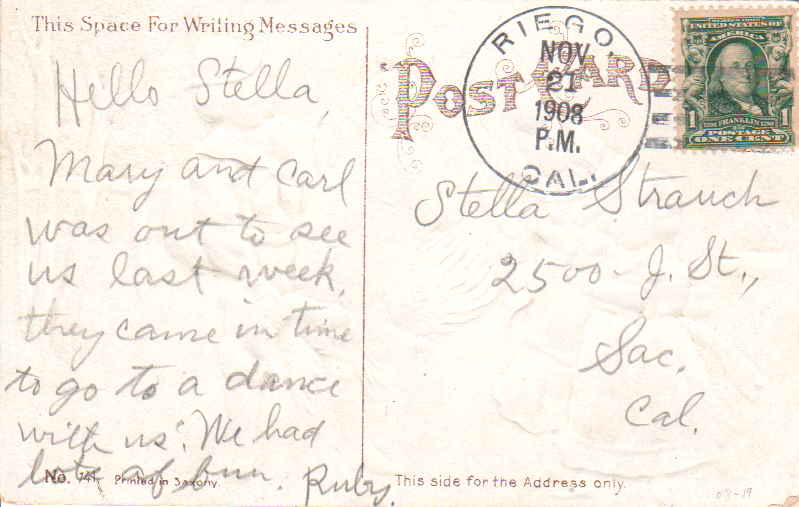 This Space For Writing Messages
Hello Stella,
Mary and Carl
was out to see
us last week,
they came in time
to go to a dance
with us. We had
lots of fun. Ruby.
No. 741. Printed in Saxony.
POST CARD
RIEGO,
NOV
21
1908
P.M.
CAL.
UNITED STATES OF
AMERICA
1 FRANKLIN 1
POSTAGE
ONE CENT
Stella Strauch
2500 - J. St.,
Sac.
Cal.
This side for the Address only.
08-19